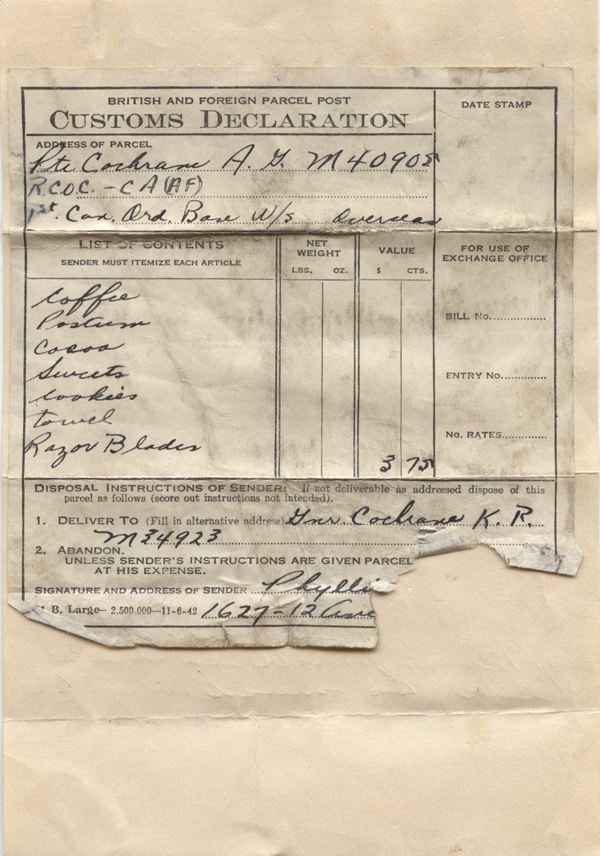 BRITISH AND FOREIGN PARCEL POST
CUSTOMS DECLARATION
DATE STAMP
ADDRESS OF PARCEL
Pte Cochrane A. G. M40905
R.C.O.C. - C A (AF)
1st Can. Ord. Base W/s Overseas
LIST OF CONTENTS
SENDER MUST ITEMIZE EACH ARTICLE
NET WEIGHT
LBS. OZ.
VALUE
$ CTS.
FOR USE OF EXCHANGE OFFICE
Coffee
Postum
Cocoa
Sweets
Cookies
towel
Razor Blades
3 75
BILL No.............
ENTRY No............
No. RATES............
DISPOSAL INSTRUCTIONS OF SENDER: If not deliverable as addressed dispose of this
parcel as follows (score out instructions not intended).
1. DELIVER TO (Fill in alternative address) Gnr Cochrane K. R.
M34923
2. ABANDON.
UNLESS SENDER'S INSTRUCTIONS ARE GIVEN PARCEL
AT HIS EXPENSE.
SIGNATURE AND ADDRESS OF SENDER Phylli
B. Large—2,500,000—11-6-42 1627-12 Ave